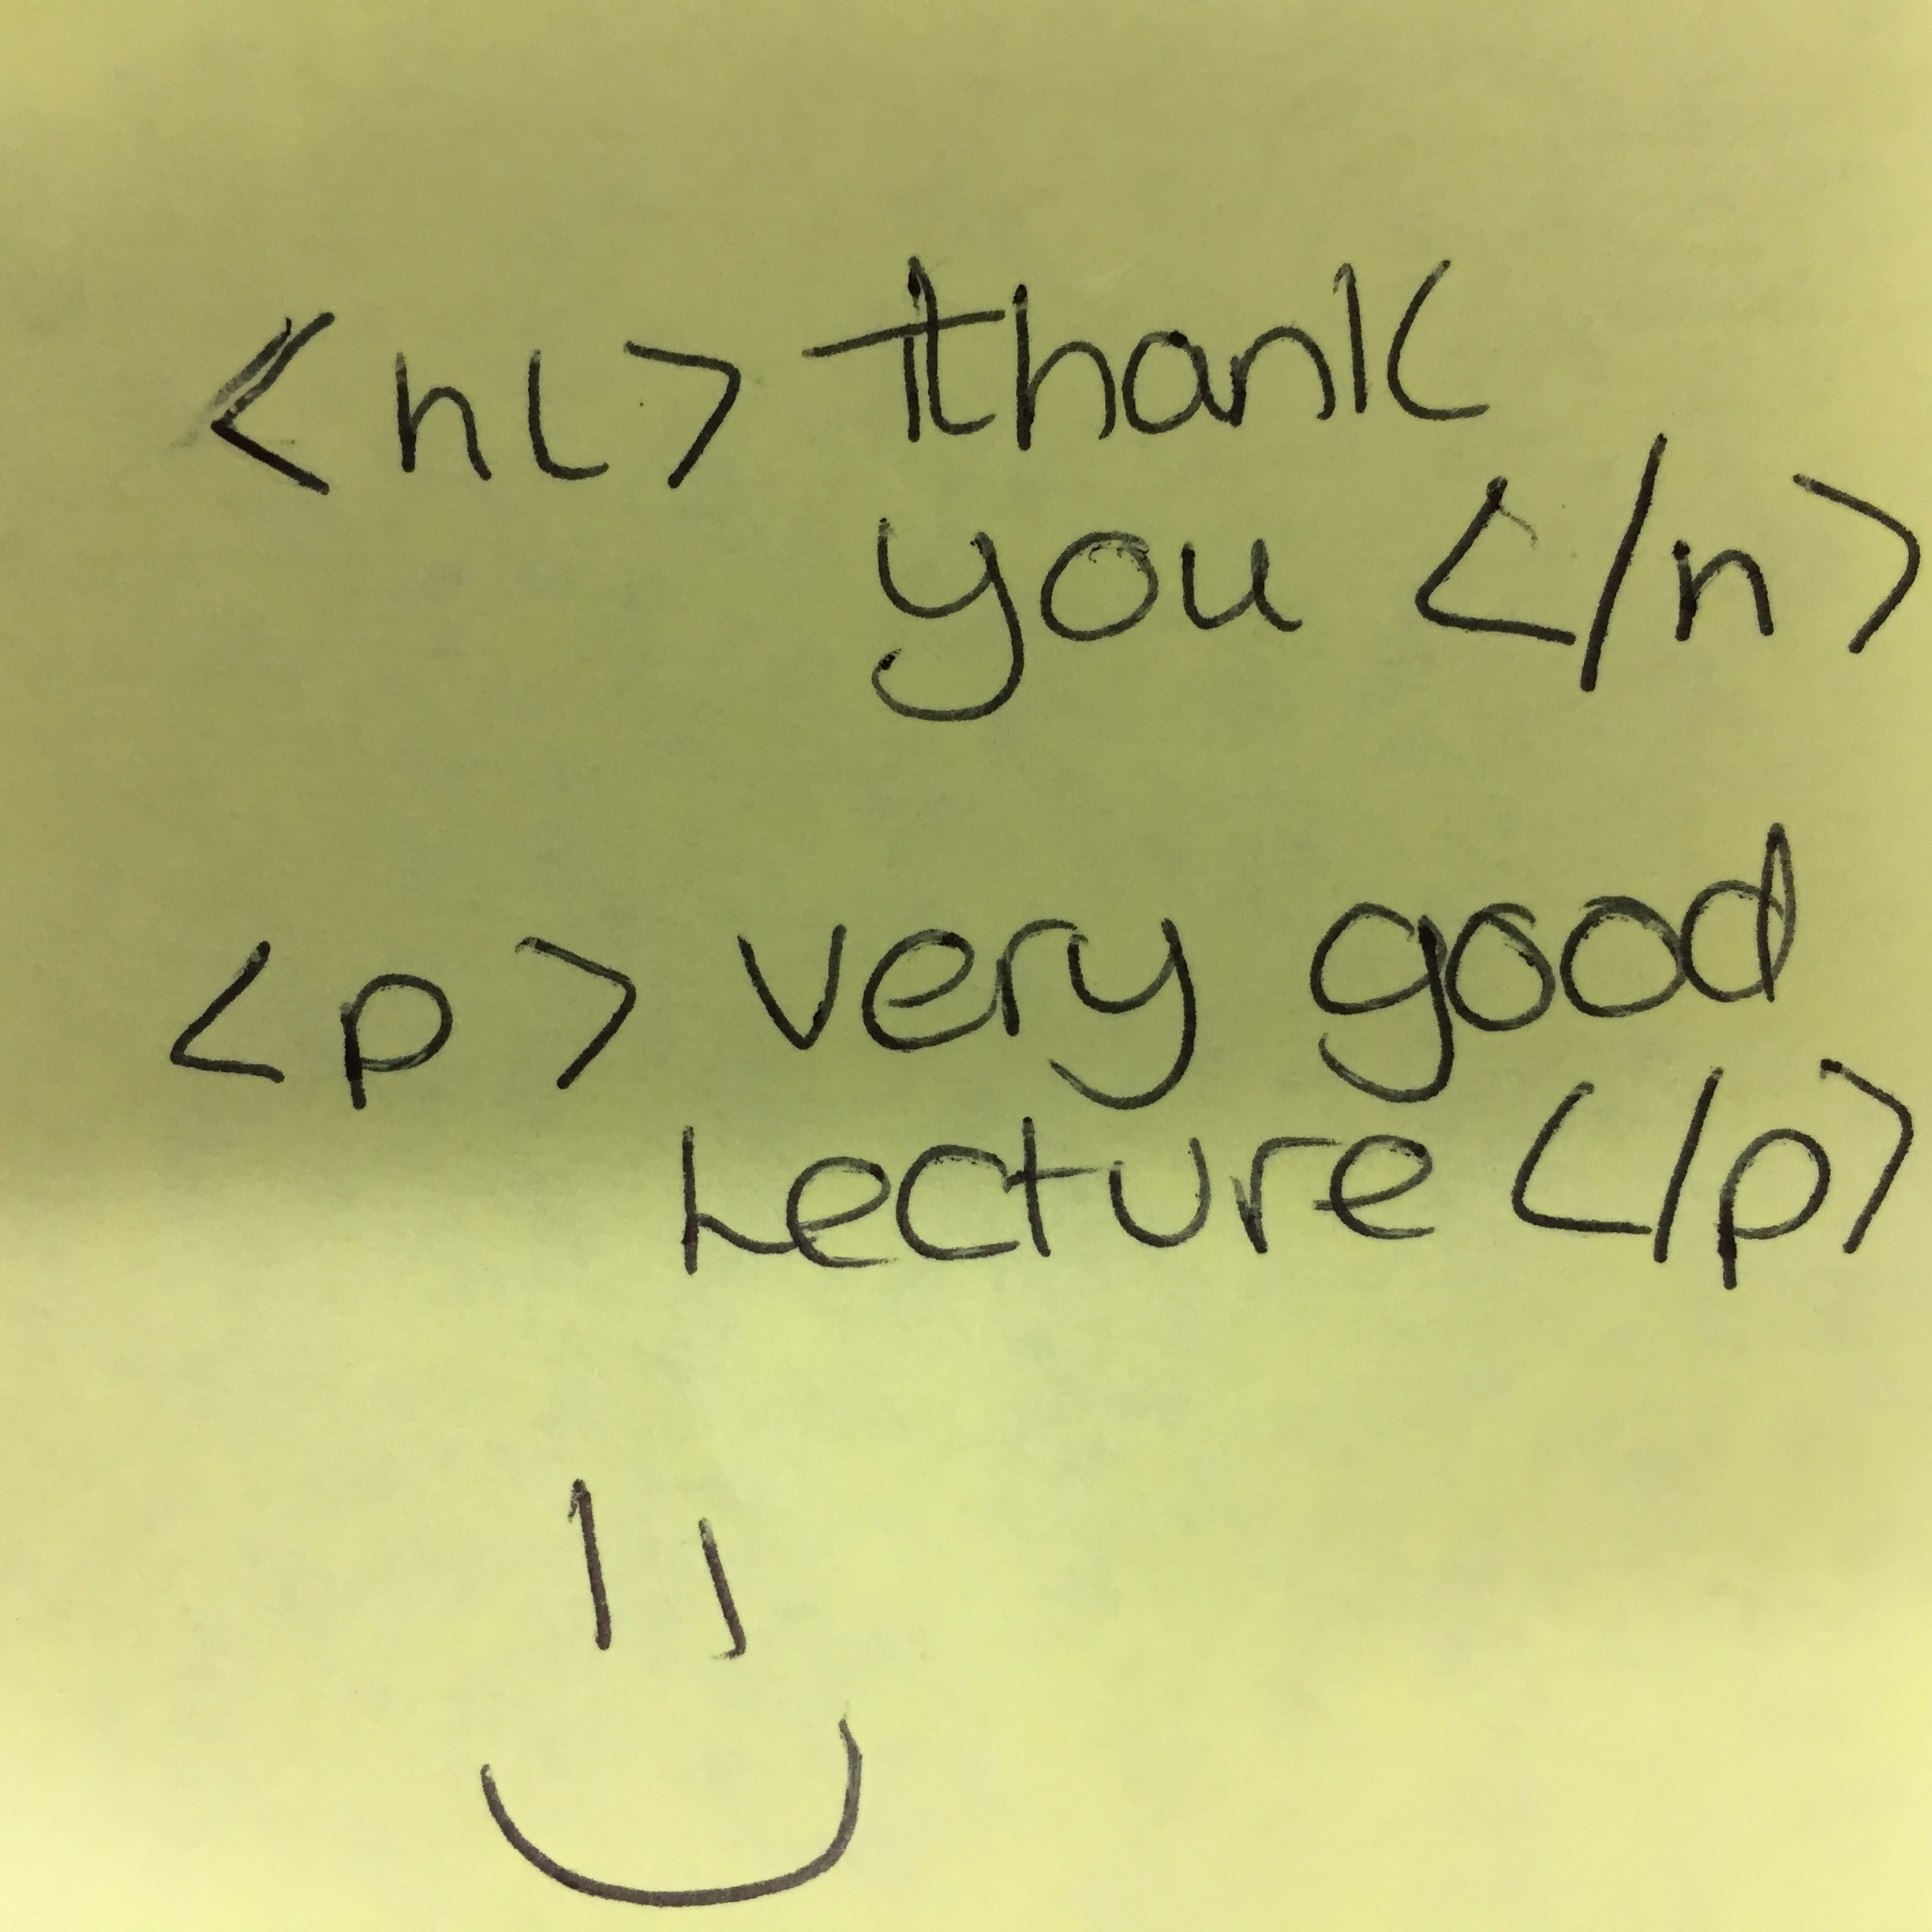 <hl> thank
you </n>
<p> very good
Lecture </p>